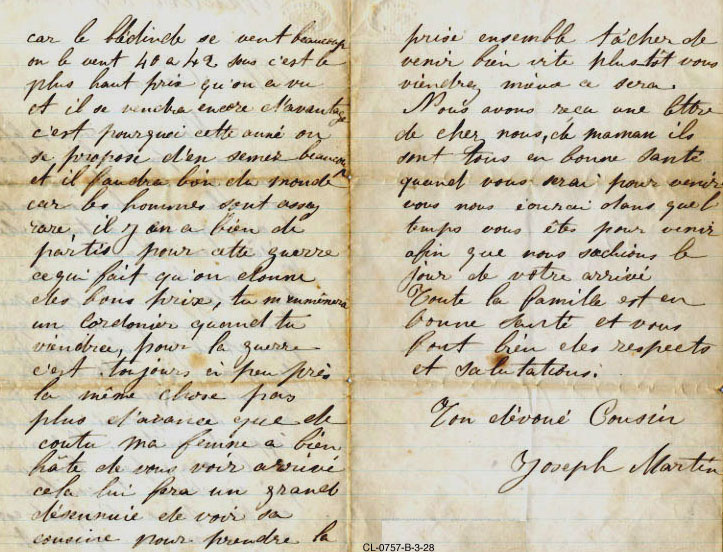 car le blédinde se vent beaucoup
on le vent 40 a 42 sous c'est le
plus haut pris qu'on a vu
et il se vendra encore d'avantage
c'est pourquoi cette anné on
se propose d'en semer beaucoup
et il faudra bien du monde
car les hommes sont assez
rare il y en a bien de
partis pour cette guerre
ce qui fait qu'on donne
des bons prix, tu m'enmènera
un Cordonier quand tu
viendra, pour la guerre
c'est toujours a peu près
la même chose pas
plus d'avance que de
coutu ma femme a bien
hâte de vous voir arrivé
cela lui fera un grand
désennuie de voir sa
cousine pour prendre la
prise ensemble tâcher de
venir bien vite plustôt vous
viendrez mieux ce sera.
Nous avons reçu une lettre
de cher nous, de maman ils
sont tous en bonne santé
quand vous serai pour venir
vous nous écrirai dans quel
temps vous êtes pour venir
afin que nous sachions le
jour de votre arrivé
Toute la famille est en
bonne santé et vous
font bien des respects
et salutations.
Ton dévoué Cousin
Joseph Martin
CL-0757-B-3-28